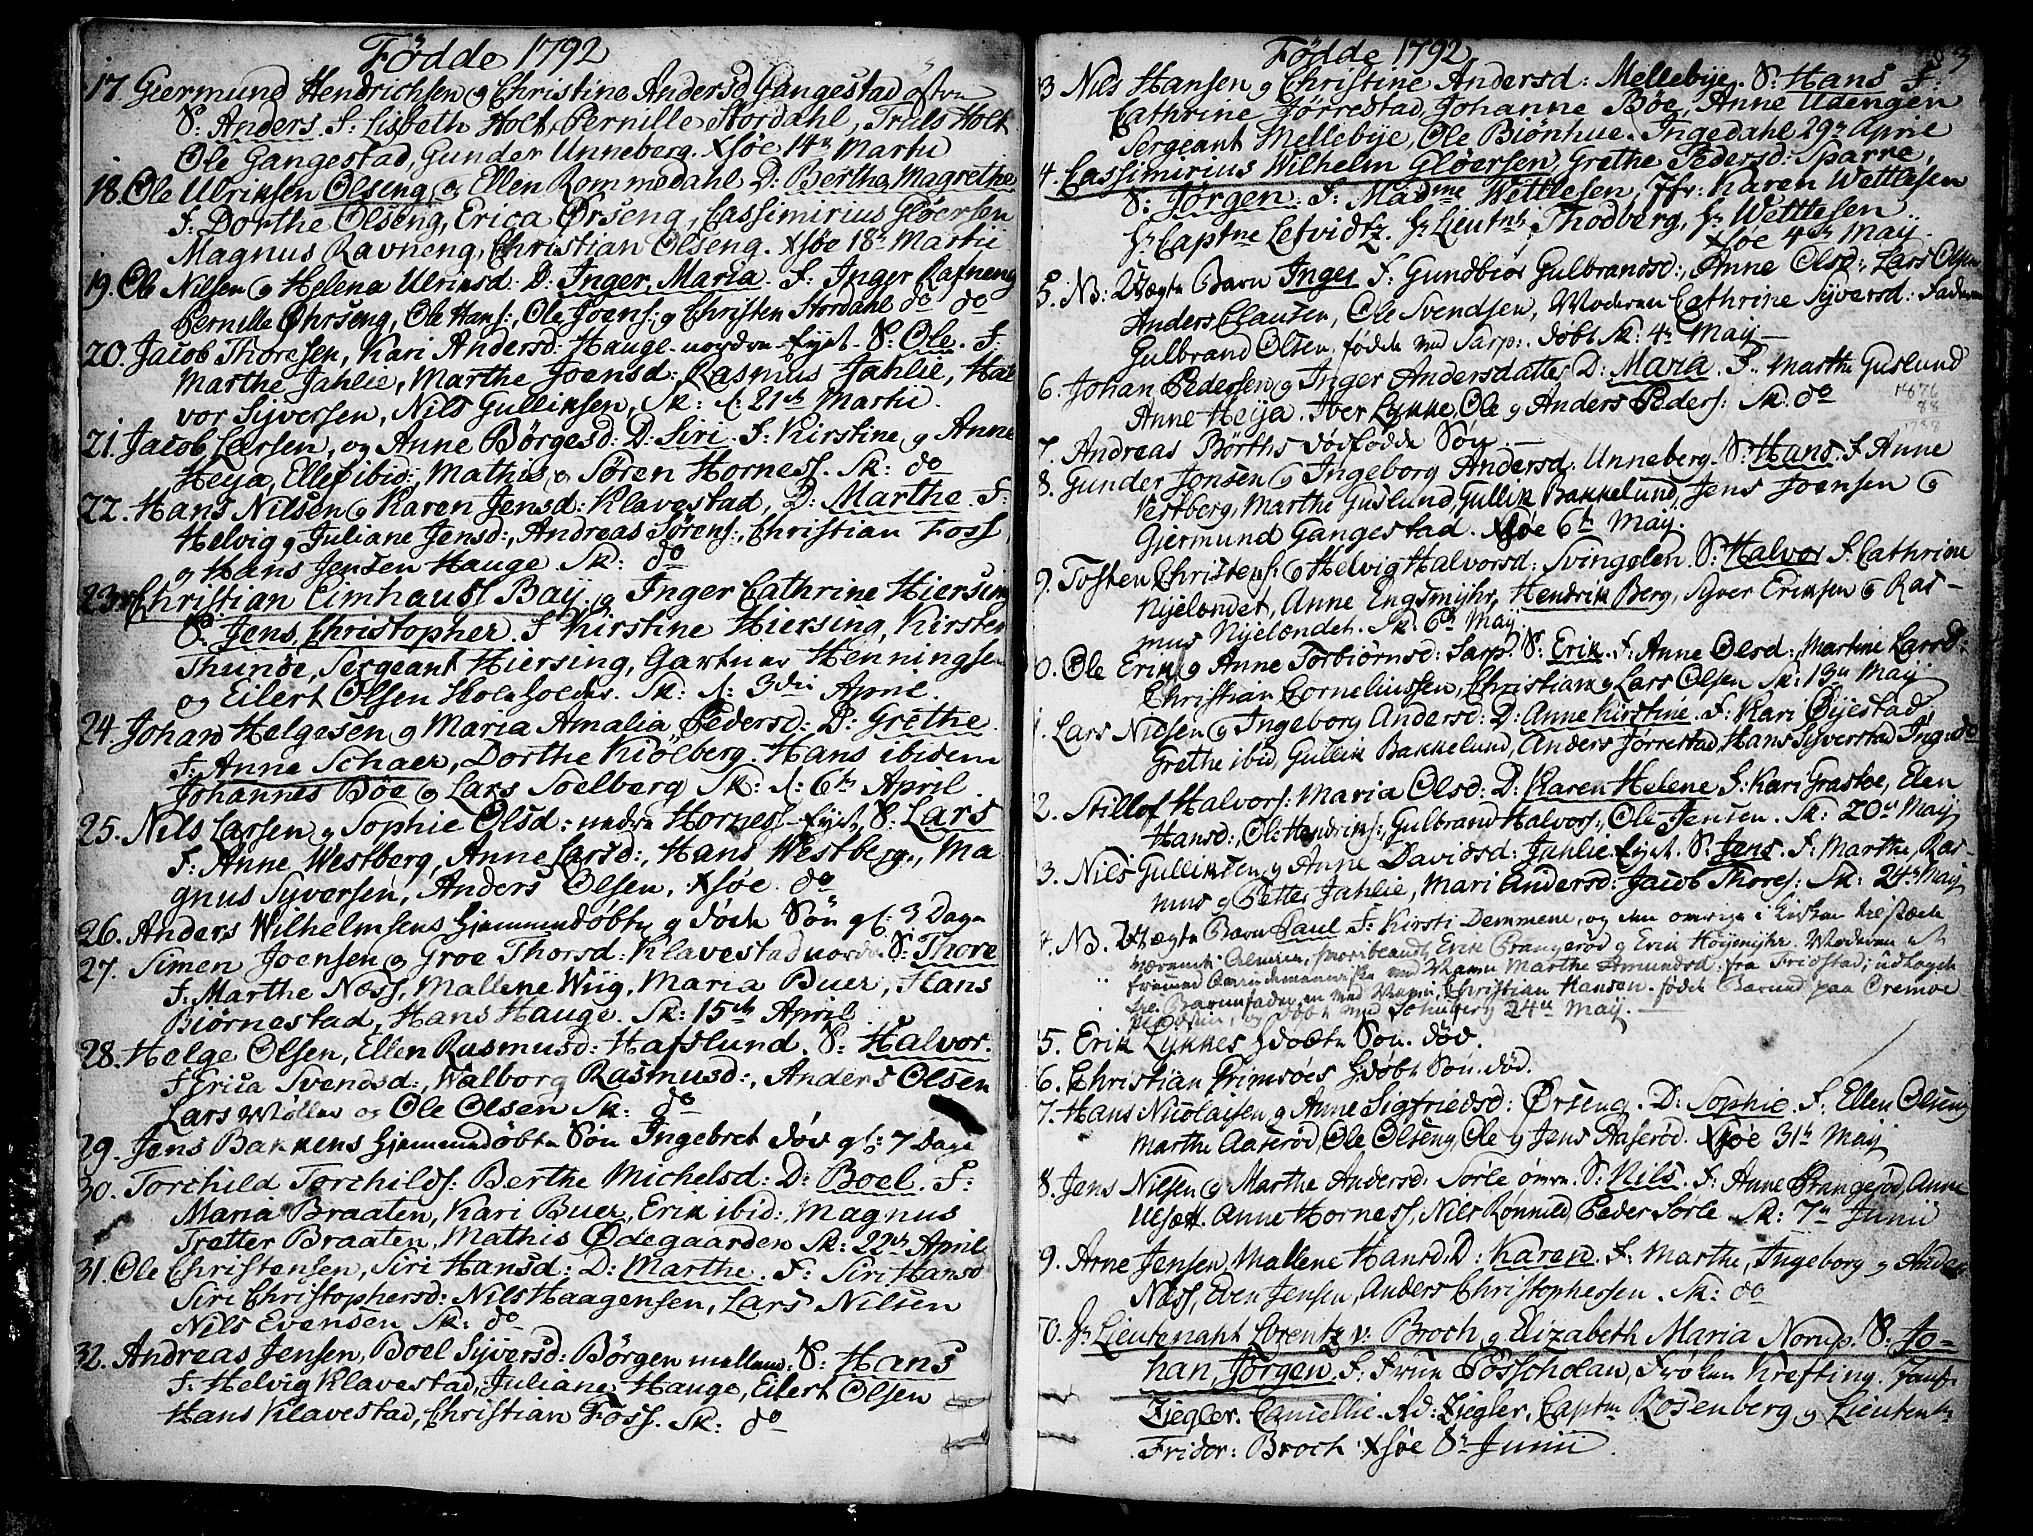 Fødde 1792
17 Giermund Hendrichsen og Christine Andersd Gangestad østre
S: Anders. F: Lisbeth Holt, Pernille Stordahl, Truls Holt
Ole Gangestad, Gunder Unneberg. Xsøe 14de Martii
18. Ole Ulriksen Olseng, og Ellen Rommedahl D: Berthe Magrethe
F: Dorthe Olseng, Erica Ørseng, Cassimirius Gløersen
Magnus Ravneng, Christian Olseng. Xsøe 18de Martii
19. Ole Nilsen og Helena Ulriksd: D: Inger Maria. F: Inger Rafneng
Pernille Øhrseng, Ole Hans:, Ole Joens: og Christen Stordahl do do
20. Jacob Thoresen, Kari Andersd: Hauge nordre Eyet. S: Ole. F:
Marthe Jahlie, Marthe Joensd: Rasmus Jahlie, Hal
vor Syversen, Nils Gulliksen, Sk: d: 21de Martii.
21. Jacob Larsen, og Anne Børgesd: D: Siri. F: Kirstine og Anne
Heya, Ellef ibid: Mathis og Søren Horness. Sk: do
22. Hans Nilsen og Karen Jensd: Klavestad, D: Marthe. F:
Helvig og Juliane Jensd:, Andreas Sørens:, Christian Foss
og Hans Jensen Hauge Sk: do
23. Christian Eimhaus Baÿ, og Inger Cathrine Hiersing
S: Jens Christopher. F Kirstine Hiersing, Kirsten
Thunde, Sergeant Hiersing, Gartner Henningsen
og Eilert Olsen Skoleholder. Sk: d: 3die April.
24. Johan Helgesen og Maria Amalia Pedersd: D: Grethe
F: Anne Schaer, Dorthe Kiølberg. Hans ibidem
Johannes Bøe og Lars Soelberg Sk: d: 6te April.
25. Nils Larsen og Sophie Olsd: nedre Horness Eyet, S: Lars
F: Anne Westberg, Anne Larsd:, Hans Westberg, Ma
gnus Syversen, Anders Olsen, Xsøe. do
26. Anders Wilhelmsens Hjemmedøbte og døde Søn gl: 3 Dage
27. Simen Joensen og Groe Thorsd: Klavestad nordre S: Thore
F: Marthe Næss, Mallene Wiig, Maria Buer, Hans
Biørnestad, Hans Hauge. Sk: 15de April
28. Helge Olsen, Ellen Rasmusd: Hafslund. S: Halvor.
F Erica Svendsd:, Walborg Rasmusd:, Anders Olsen
Lars Møller og Ole Olsen Sk: do
29. Jens Bakkens hjemmedøbte Søn Ingebret død gl: 7 Dage
30. Torchild Torchilds: Berthe Michelsd: D: Boel. F:
Maria Braaten, Kari Buer, Erik ibid: Magnus
Tretter Braaten, Mathis Ødegaarden Sk: 22de April
31. Ole Christensen, Siri Hansd: D: Marthe. F: Siri Hansd
Siri Christophersd: Nils Haagensen, Lars Nilsen
Nils Evensen Sk: do
32. Andreas Jensen, Boel Syversd: Børgen mellem: S: Hans
F: Helvig Klavestad, Juliane Hauge, Eilert Olsen
Hans Klavestad, Christian Foss. Sk: do
Fødde 1792
3 Nils Hansen og Christine Andersd: Mellebye. S: Hans F:
Cathrine Jørrestad, Johanne Bøe, Anne Udengen
Sergeant Mellebye, Ole Biønhue. Ingedahl 29de April
4. Cassimirius Wilhelm Gløersen, Grethe Pedersd: Sparre,
S: Jørgen. F: Madme Wettlesen, Jfr: Karen Wettlesen
Hr Captne Lefvidtz. Hr Lieutnt Thodberg, Hr Wettlesen.
Xsøe 4de Maÿ.
5. NB: Uægte Barn Inger F: Gundbiør Gulbrandsd:, Anne Olsd:, Lars Olsen
Anders Clausen, Ole Svendsen, Moderen Cathrine Syversd: Faderen
Gulbrand Olsen, født ved Sarp: døbt Sk: 4de Maÿ
6. Johan Pedersen og Inger Andersdatter D: Maria. F: Marthe Guslund
Anne Heÿa. Iver Lykke, Ole og Anders Peders: Sk: do
1876
88
1788
7. Andreas Børths dødfødde Søn.
8. Gunder Jonsen og Ingeborg Andersd: Unneberg. S: Hans. F Anne
Vestberg, Marthe Guslund, Gullik Bakkelund, Jens Joensen og
Gjermund Gangestad. Xsøe 6te Maÿ.
9. Tosten Christens: og Helvig Halvorsd: Svingelen. S: Halvor F. Cathrine
Nyelændet, Anne Engsmyhr, Hendrik Berg, Syver Eriksen og Ras-
mus Nyelændet. Sk: 6te Maÿ
0. Ole Erik: og Anne Torbiørnsd: Sarp: S: Erik. F: Anne Olsd:, Martine Larsd:
Christian Corneliussen, Christian og Lars Olsen Sk: 13de Maÿ
1. Lars Nilsen og Ingeborg Andersd: D: Anne Kirstine. F: Kari Øyestad,
Grethe ibid, Gullik Bakkelund, Anders Jørrestad, Hans Syverstad Ing: do
2. Stillof Halvors: Maria Olsd: D: Karen Helene F: Kari Grastoe, Elen
Hansd:, Ole Hendriks:, Gulbrand Halvors:, Ole Jensen. Sk: 20de Maÿ
3. Nils Gulliksen og Anne Davidsd: Jahlie Eyet. S: Jens. F: Marthe, Ras
mus og Petter Jahlie, Mari Andersd: Jacob Thores: Sk: 24de Maÿ
4. NB. Uægte Barn Paul F: Kirsti Demmene, og den i Kirken
Almuen, Erik Prangerød og Erik Høÿemÿhr. Moderen et
fremmed ved Navn Marthe Amundsd: fra Fridstad, udlagde
til Barnefader en ved Navn Christian Hanson. født Barnet paa Oremoe
og døbt 24de Maÿ.
5. Erik Lykkes hdøbte Søn. død.
6. Christian Grimsøes hdøbt Søn. død.
7. Hans Nicolaisen og Anne Sigfriedsd: Ørseng. D: Sophie. F. Ellen Olseng
Marthe Aaserød, Ole Olseng, Ole og Jens Aaserød. Xsøe 31te Maÿ
8. Jens Nilsen og Marthe Andersd: Sørleømre. S: Nils. F: Anne Prangerød, Anne
Ulsæt. Anne Horness, Nils Rønnild, Peder Sørle. Sk: 7de Junii
9. Arne Jensen, Mallene Hansd. D: Karen. F: Marthe, Ingeborg og Anders
Næss, Even Jensen, Anders Christophersen. Sk: do
0. Hr Lieutenant Lorentz v: Broch og Elizabeth Maria Norup. S: Jo-
han, Jørgen. F: Frue Posscholan, Frøken Krefting. Jomf:
Ziegler. Camellie. Ad: Ziegler, Captn Rosenberg og Lieutent
Fridor: Broch Xsøe 8de Junii.